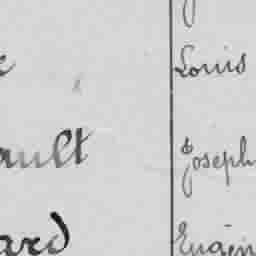 Louis
ault Joseph
ard Eugèn